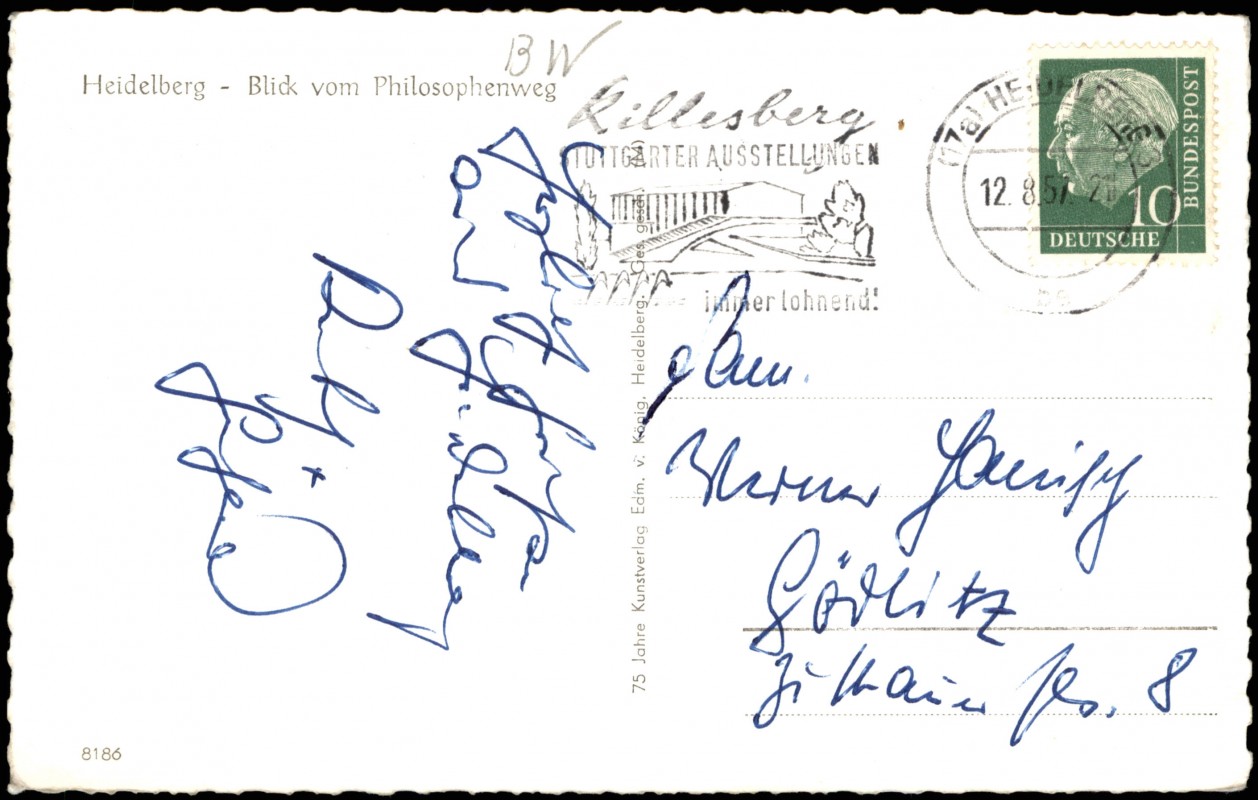 BW
Heidelberg - Blick vom Philosophenweg
Killesberg
STUTTGARTER AUSSTELLUNGEN
immer lohnend!
(17a) HEIDELBERG
12. 8.57. 21
BUNDESPOST
10
DEUTSCHE
75 Jahre Kunstverlag Edm. v. König, Heidelberg. Ges. gesch.
Herzliche Grüße
aus Heidelberg
Fam.
Werner
Görlitz
Zittauer Str. 8
8186